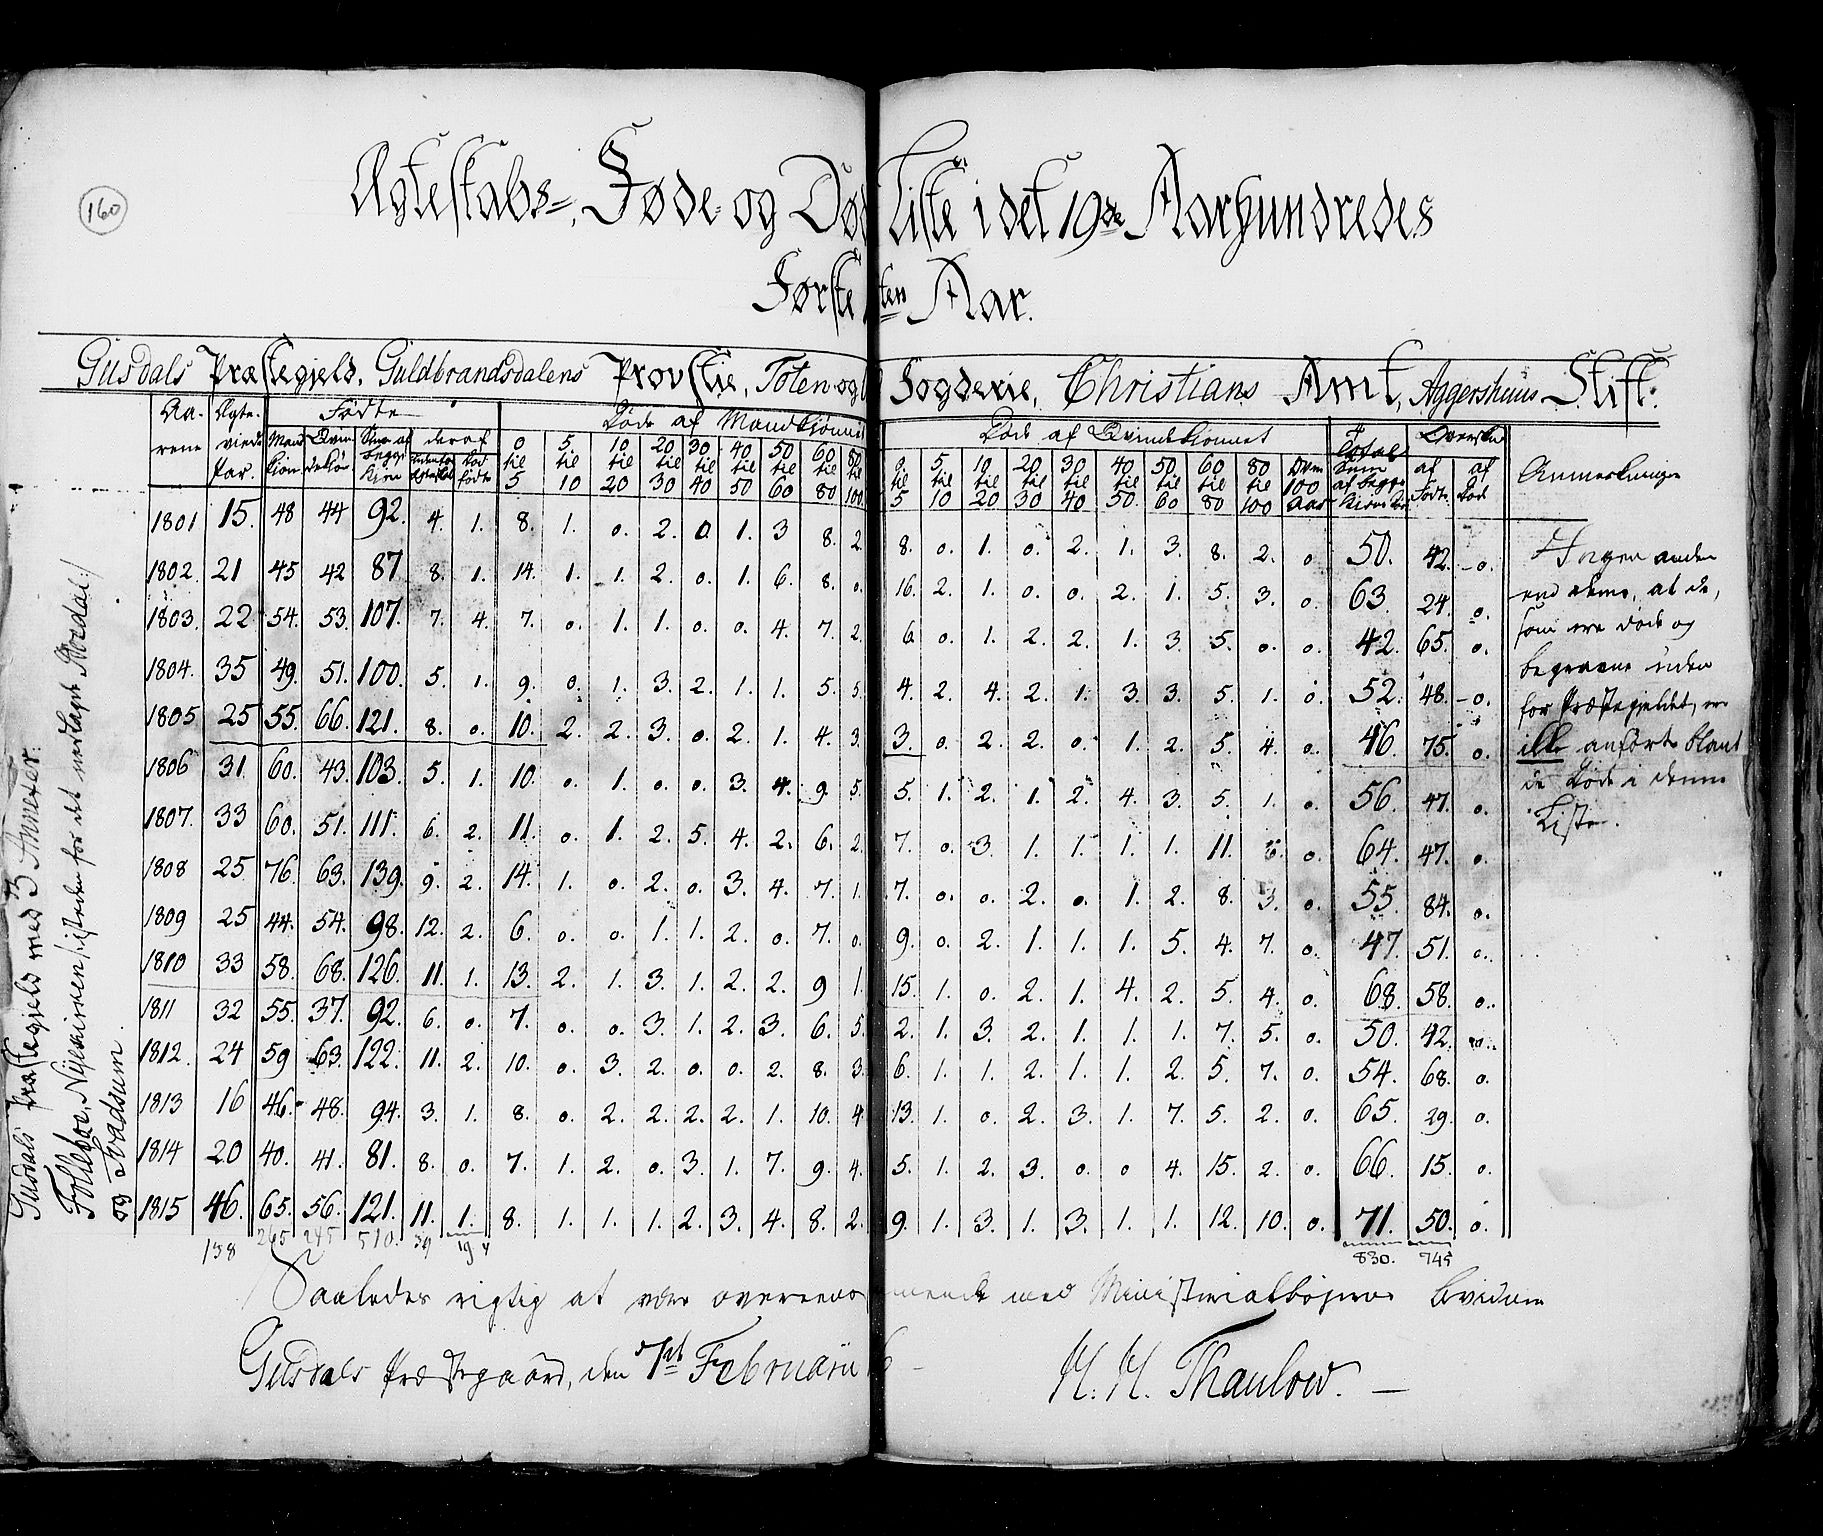 160
Ægteskabs-, Føde- og Død Liste i det 19de Aarhundredes
Første ten Aar.
Gusdals Præstegjeld, Guldbrandsdalens Provstie, Toten og Fogderie, Christians Amt, Aggershuus Stift.
Aarene | Ægteviede Par. | Fødte | Døde af Mandkiønnet | Døde af Qvindekiønnet | Total Sum af begge Kiøns Døde | Oversku | Anmerkninger
Mandkiøn | Qvindekiøn | Sum af begge Kiøn | deraf | 0 til 5 | 5 til 10 | 10 til 20 | 20 til 30 | 30 til 40 | 40 til 50 | 50 til 60 | 60 til 80 | 80 til 100 | 0 til 5 | 5 til 10 | 10 til 20 | 20 til 30 | 30 til 40 | 40 til 50 | 50 til 60 | 60 til 80 | 80 til 100 | Over 100 Aar | af Fødte | af Død
1801 15. 48 44 92. 4. 1. 8. 1. 0. 2. 0 1. 3 8. 2. 8. 0. 1. 0. 2. 1. 3. 8. 2. 0 50. 42. 0.
1802. 21 45 42 87 8. 1. 14. 1. 1. 2. 0. 1. 6. 8. 0. 16. 2. 1. 0. 0. 2. 1. 5. 3. 0. 63. 24 0.
1803. 22 54. 53. 107. 7. 4. 7. 0. 1. 1. 0. 0. 4. 7. 2. 6. 0. 1. 2. 2. 1. 3. 5. 0. 0. 42. 65. 0.
1804. 35 49. 51. 100. 5. 1. 9. 0. 1. 3. 2. 1. 1. 5. 5. 4. 2. 4. 2. 1. 3. 3. 5. 1. 0. 52. 48. 0.
1805 25 55. 66. 121. 8. 0. 10. 2. 2. 3. 0. 2. 1. 4. 3. 3. 0. 2. 2. 0. 1. 2. 5. 4. 0. 46 75. 0.
1806 31 60. 43. 103. 5. 1. 10. 0. 1. 0. 0. 3. 4. 9. 5. 5. 1. 2. 1. 2. 4. 3. 5. 1. 0. 56. 47. 0.
1807. 33 60. 51. 111. 6. 2. 11. 0. 1. 2. 5. 4. 2. 6. 2. 7. 0. 3. 1. 1. 1. 1. 11. 0. 64. 47. 0.
1808 25 76. 63. 139. 9. 2. 14. 1. 0. 2. 0. 3. 4. 7. 1. 7. 0. 0. 2. 0. 1. 2. 8. 3. 0. 55. 84. 0.
1809 25 44. 54. 98. 12. 2. 6. 0. 0. 1. 1. 2. 0. 7. 0. 9. 0. 2. 1. 1. 1. 5. 4. 7. 0. 47. 51. 0.
1810 33 58. 68. 126. 11. 1. 13. 2. 1. 3. 1. 2. 2. 9 1. 15. 1. 0. 2. 1. 4. 2. 5. 4. 0. 68. 58. 0.
1811 32 55. 37. 92. 6. 0. 7. 0. 0. 3. 1. 2. 3. 6. 5. 2. 1. 3. 2. 1. 1. 1. 7. 5. 0. 50. 42.
1812. 24 59 63. 122. 11. 2. 10. 0. 3. 2. 0. 0. 2. 8. 3. 6. 1. 1. 2. 1. 1. 2. 5. 7. 0. 54. 68. 0.
1813 16 46. 48. 94. 3. 1. 8. 0. 2. 2. 2. 2. 1. 10. 4 13. 1. 0 2. 3. 1. 7. 5. 2. 0. 65. 29. 0.
1814 20 40. 41. 81. 8. 0. 7. 1. 2. 0. 3. 1. 7. 9. 4. 5. 1. 2. 3. 0. 0 4. 15. 2. 0. 66. 15. 0.
1815 46. 65. 56. 121. 11. 1. 8. 1. 1. 1. 2. 3. 4. 8. 2. 9. 1. 3. 1. 3. 1. 1. 12. 10. 0. 71. 50. 0.
138 265 245 510. 39 19 830. 745
Ingen anden
end denne, at de,
som ere døde og
begravne uden
for Præstegjeldet, ere
ikke anførte blant
de Døde i denne
Liste.
Gusdals Præstegield med 3 Annexer:
Folleboe, Nykirken (istedenfor det nedlagte Aardal.)
og Svadsum.
Saaledes rigtig at være overeens mende med Ministerialbøgerne bevidnes
Gusdals Præstegaard, den 7de Februarii
H. H. Thaulow.